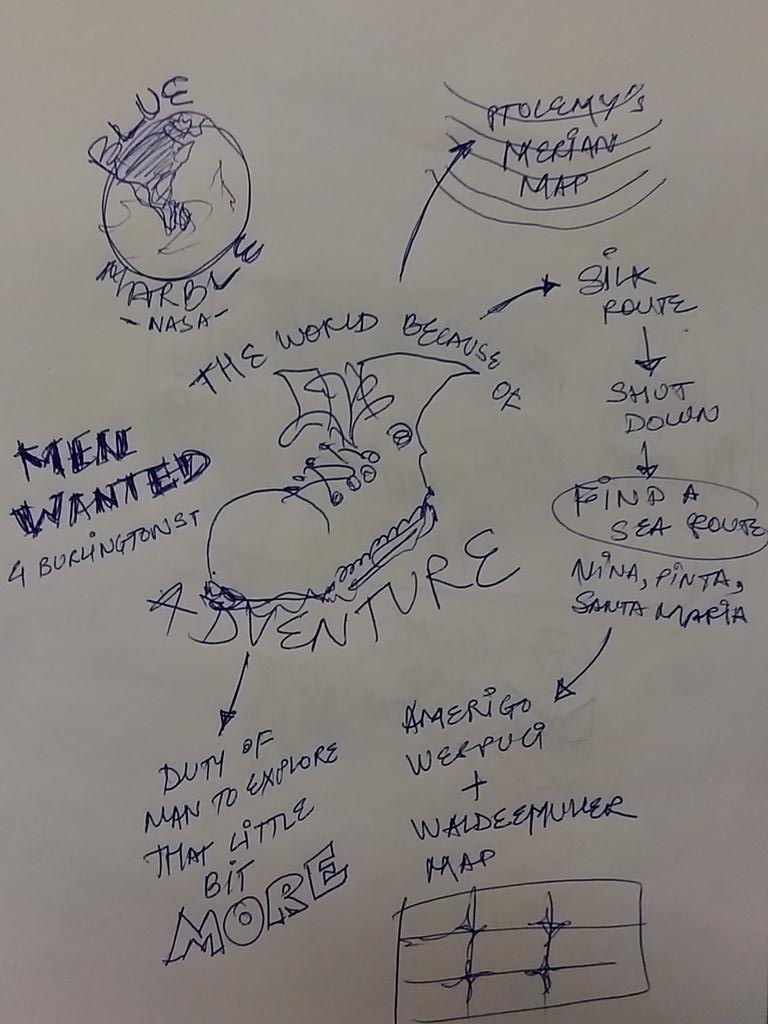 BLUE
MARBLE
-NASA-
PTOLEMY'S
MERIAN
MAP
SILK
ROUTE
SHUT
DOWN
FIND A
SEA ROUTE
NINA, PINTA,
SANTA MARIA
THE WORLD BECAUSE
OF
ADVENTURE
MEN
WANTED
4 BURLINGTON ST
DUTY OF
MAN TO EXPLORE
THAT LITTLE
BIT
MORE
AMERIGO
WESPUCI
+
WALDEEMULLER
MAP